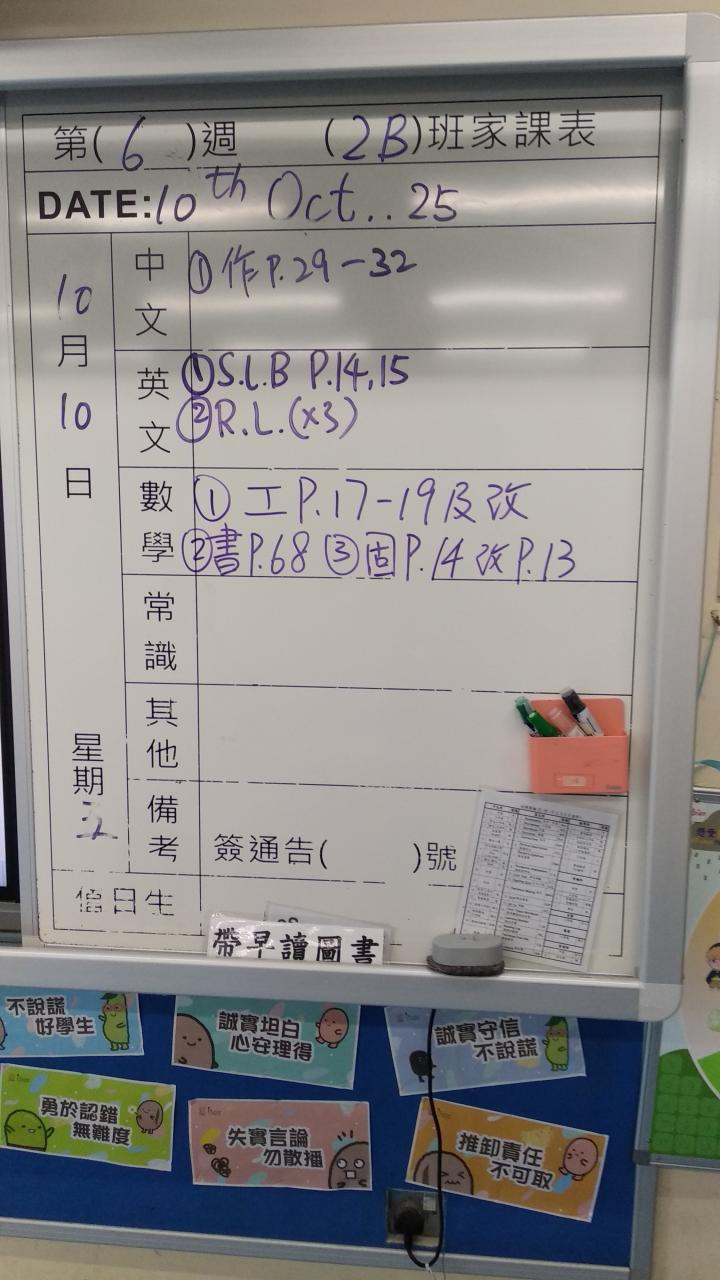 第( 6 )週 (2B)班家課表
DATE:10th Oct..25
10月10日
星期五
中文
①作P.29-32
英文
①S.L.B P.14,15
②R.L.(x3)
數學
①工P.17-19及改
②書P.68 ③固P.14改P.13
常識
其他
備考
簽通告( )號
值日生
帶早讀圖書
不說謊
好學生
誠實坦白
心安理得
誠實守信
不說謊
勇於認錯
無難度
失實言論
勿散播
推卸責任
不可取